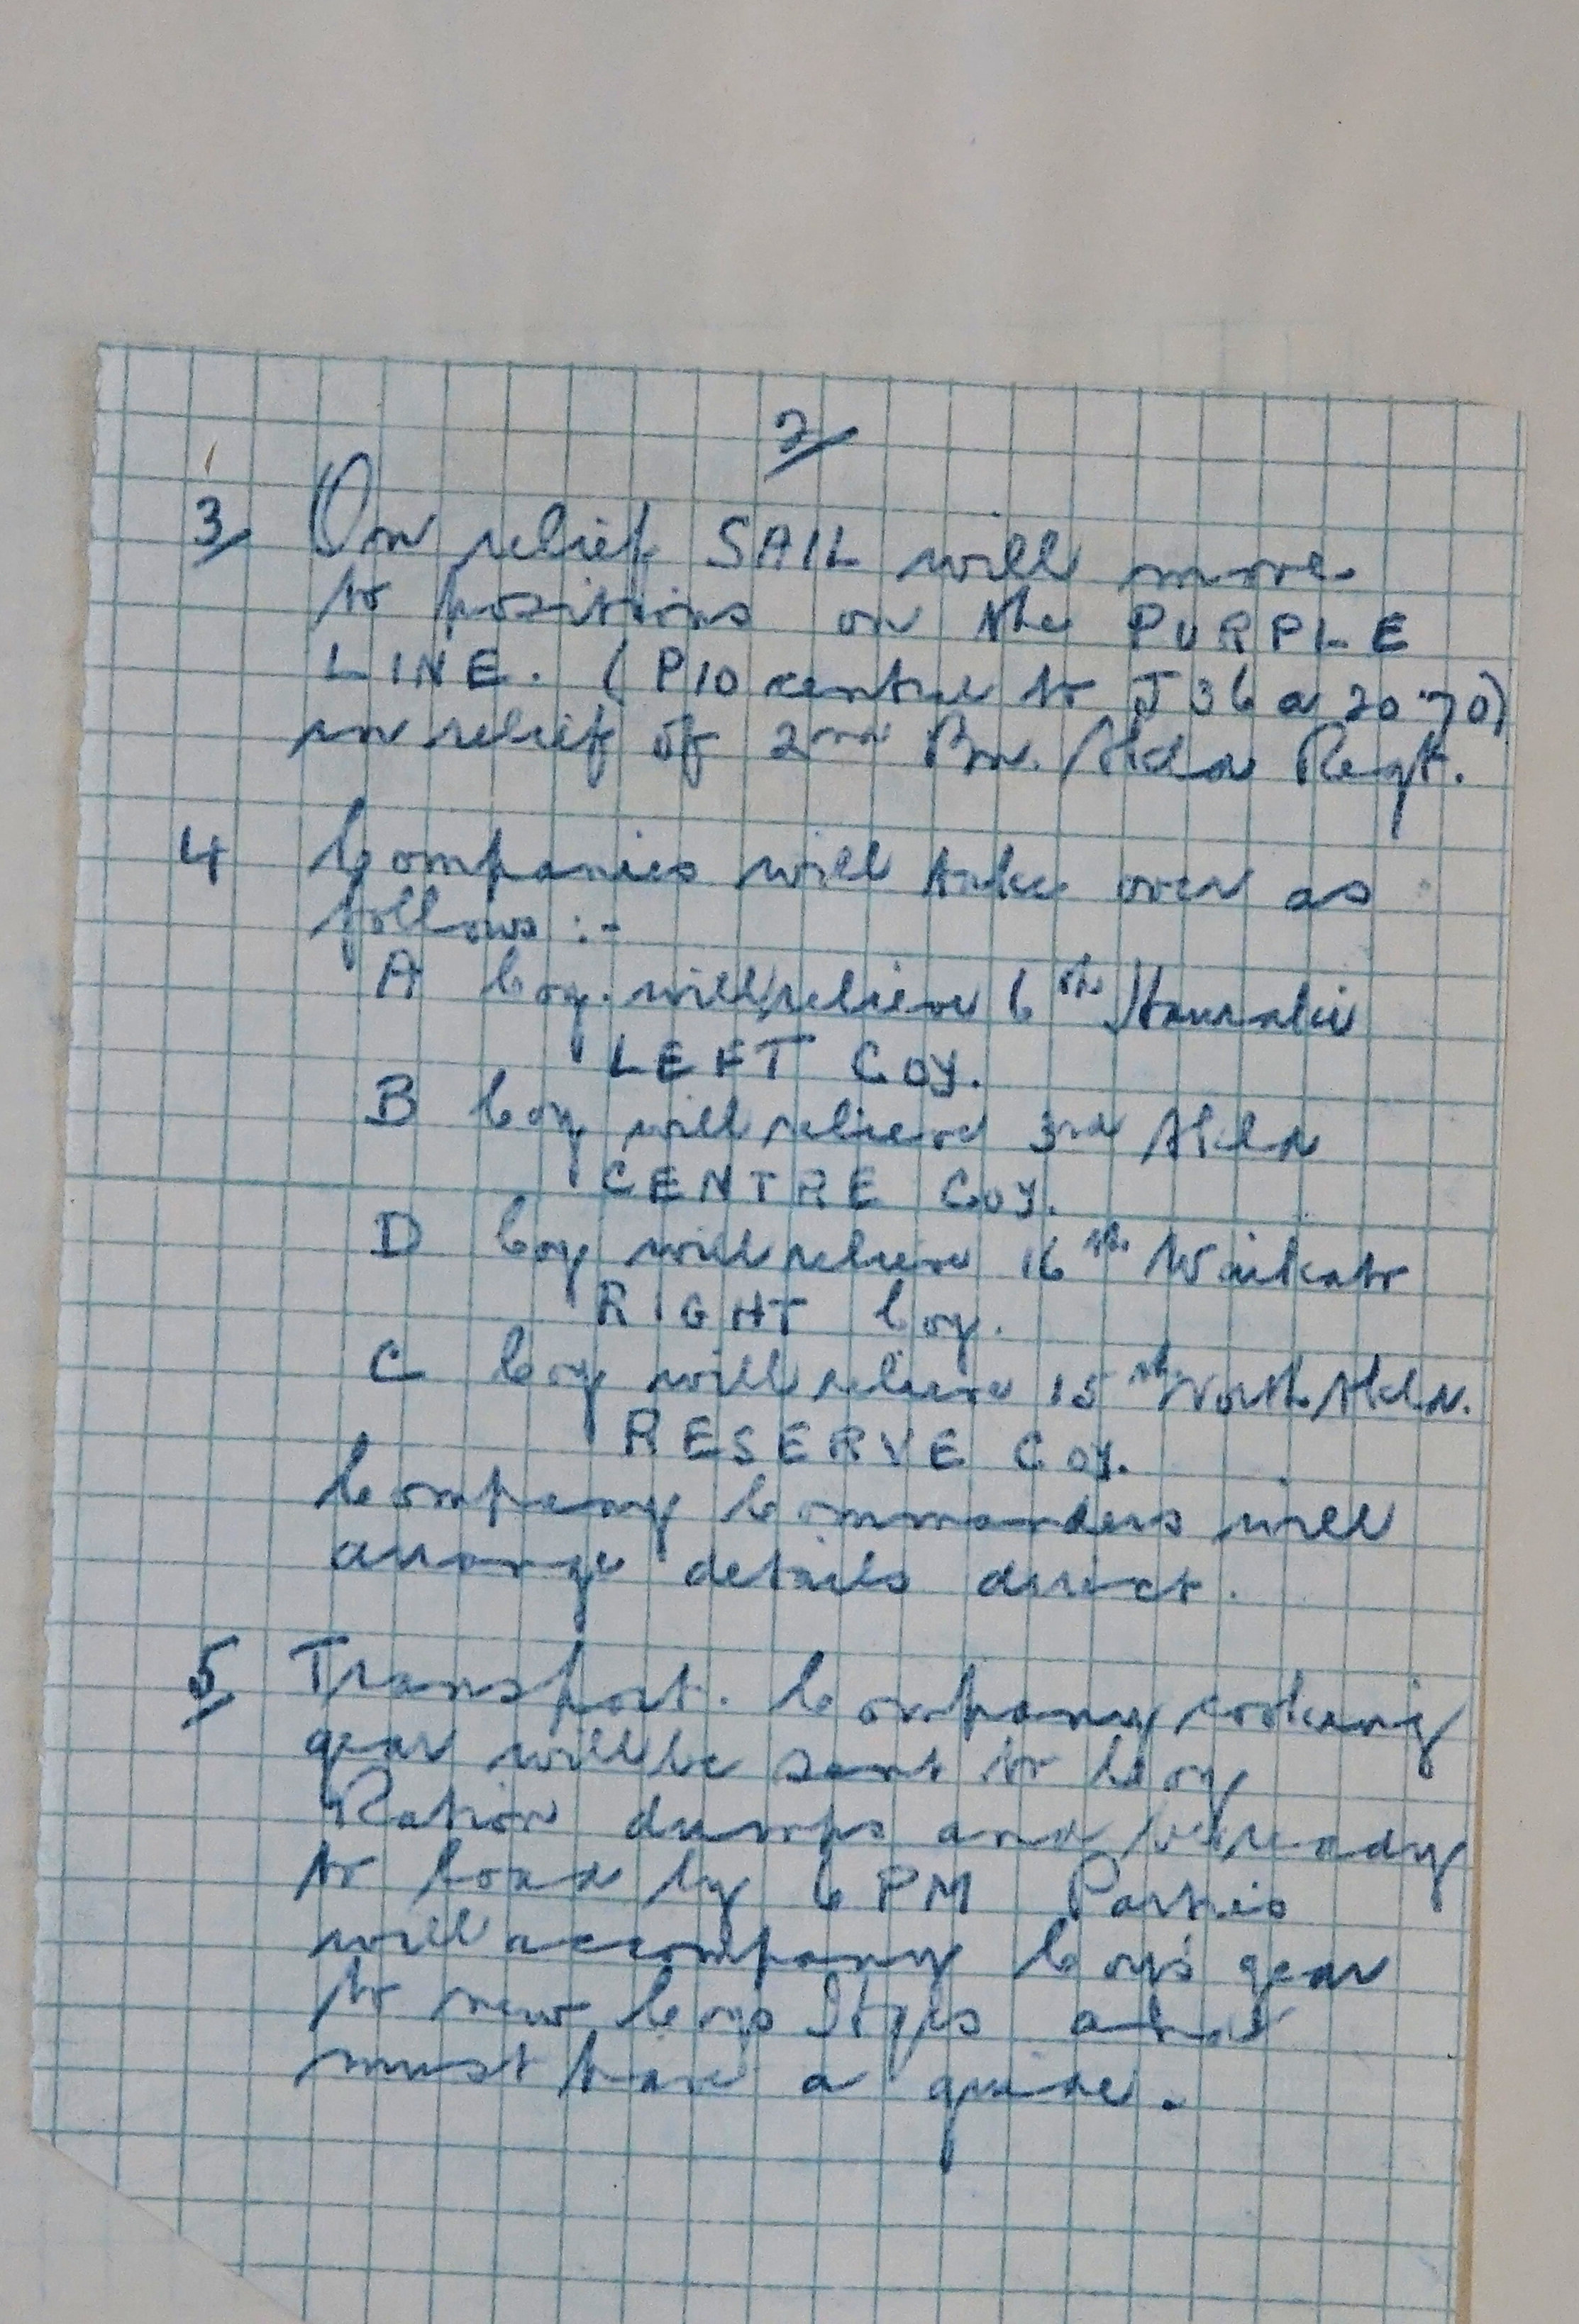 2/
3/ On relief SAIL will move
to positions on the PURPLE
LINE. (P10 central to J36a 20.70)
in relief of 2nd Bn. Akld Regt.
4 Companies will take over as
follows :-
A Coy. will relieve 6th Hauraki
LEFT COY.
B Coy will relieve 3rd Akld
CENTRE COY.
D Coy will relieve 16th Waikato
RIGHT Coy.
C Coy will relieve 15th North Akld.
RESERVE COY.
Company Commanders will
arrange details direct.
5/ Transport. Company cooking
gear will be sent to Coy
Ration dumps and be ready
to load by 6 PM Parties
will accompany Coys gear
to new Coys
must have a guide.